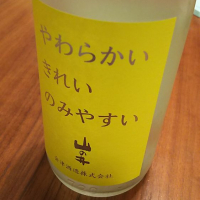 やわらかい
きれい
のみやすい
山の井
会津酒造株式会社